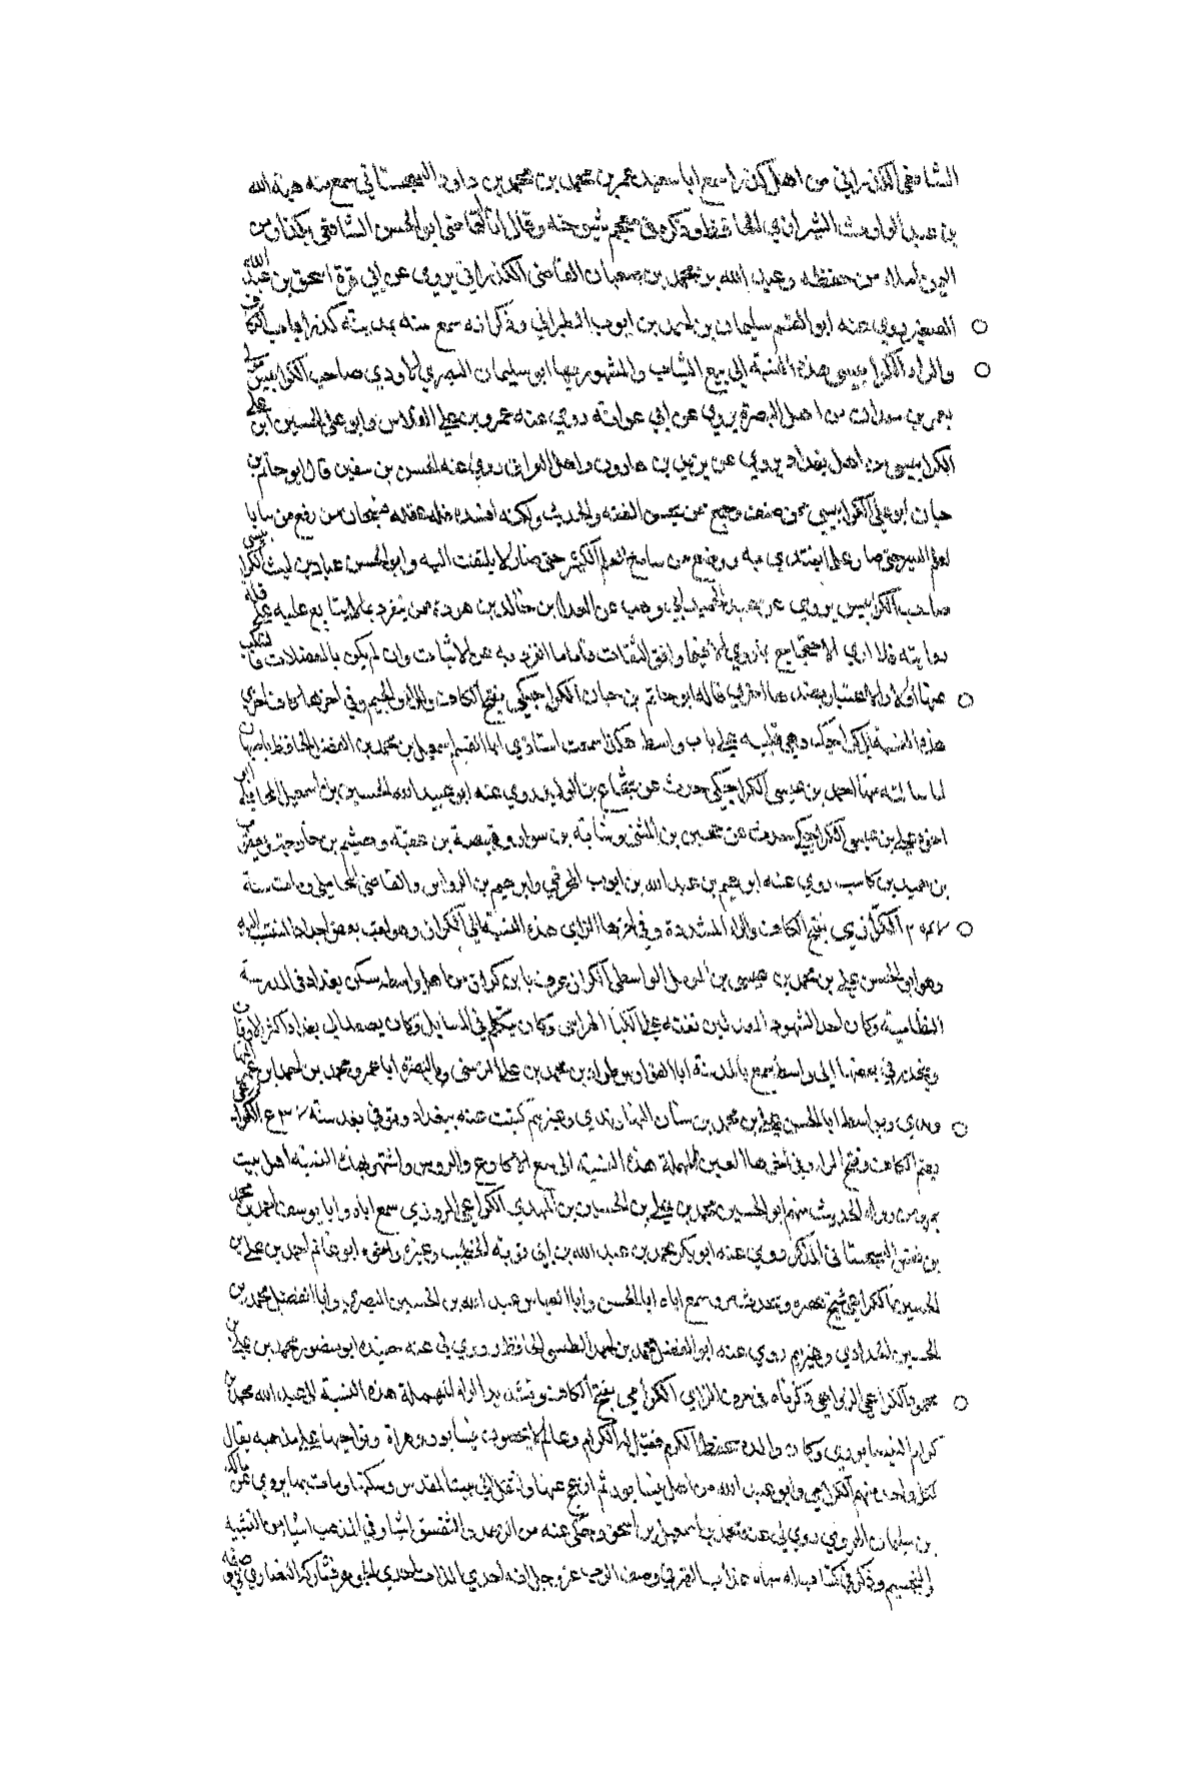 الشافعي الكدراني من اهل كدرا سمع ابا سعيد عمر بن محمد بن محمد بن داود السجستاني سمع منه هبة الله
بن عبد الوارث الشيرازي الحافظ وذكره في معجم شيوخه وقال انا القاضي ابو الحسن الشافعي بكدرا من
اليمن املاء من حفظه وعبد الله بن محمد بن صعبان القاضي الكدراني يروي عن ابي قرة اسحق بن عبد الله
الصغير روى عنه ابو القسم سليمان بن احمد بن ايوب الطبراني وذكر انه سمع منه بمدينته كدرا
والراء الكرابيسي هذه النسبة الى بيع الثياب والمشهور بها ابو سليمان البصري الاودي صاحب الكرابيس
من اهل البصرة يروي عن ابي عوانة روى عنه عمرو بن علي الفلاس وابو علي الحسين ابن علي
الكرابيسي من اهل بغداد يروي عن يزيد بن هارون واهل العراق روى عنه الحسن بن سفين قال ابو حاتم بن
حبان ابو علي الكرابيسي ممن صنف وجمع ممن يحسن الفقه والحديث ولكنه افسده قلة عقله فسبحان من رفع من
العلم اليسير حتى صار علما يقتدى به ووضع من العلم الكثير حتى صار لا يلتفت اليه وابو الحسن عباد بن ليث
صاحب الكرابيس يروي عن عبد المجيد ابي وهب عن العداء بن خالد بن هوذة ممن ينفرد بما لا يتابع عليه على قلة
روايته فلا ارى الاحتجاج بما روى الا فيما وافق الثقات فاما ما انفرد به عن الاثبات وان لم يكن بالمعضلات
هذا اخرى قاله ابو حاتم بن حبان الكراجكي بفتح الكاف والراء والجيم وفي اخرها كاف اخرى
هذه النسبة الى كراجك وهي قرية على باب واسط هكذا سمعت استاذي ابا القسم اسمعيل بن محمد بن الفضل الحافظ باصبهان
لما سالته عنها احمد بن عيسى الكراجكي حدث عن شجاع بن الوليد روى عنه ابو عبيد الله الحسين بن اسمعيل المحاملي
اخوه علي بن عيسى الكراجكي حدث عن حجين بن المثنى وشبابة بن سوار وقبيصة بن عقبة وهيثم بن خارجة ويعقوب
بن حميد بن كاسب روى عنه ابرهيم بن عبد الله بن ايوب المخرمي وابرهيم بن والقاضي المحاملي ومات سنة
الكراني بفتح الكاف والراء المشددة وفي اخرها الزاي هذه النسبة الى الكراز وهو لقب بعض اجداد المنتسب اليه
وهو ابو الحسن علي بن محمد بن عيسى بن الواسطي الكرازي عرف بابن كراز من اهل واسط سكن بغداد في المدرسة
النظامية وكان احد الشهود المعدلين تفقه على الكيا الهراسي وكان يتكلم في المسايل وكان يصعد الى بغداد اكثر الاوقات
وينحدر في بعضها الى واسط سمع بالمدينة ابا الفوارس طراد بن محمد بن علي الزينبي وبالبصرة ابا عمرو محمد بن احمد بن عمر
وبواسط ابا الحسن علي بن محمد بن سنان النهاوندي وغيرهم كتبت عنه ببغداد وتوفي بعد سنة
بضم الكاف وفتح الراء وفي اخرها العين المهملة هذه النسبة الى بيع الاكارع والروس واشتهر بهذه النسبة اهل بيت
بمرو من رواة الحديث منهم ابو الحسين محمد بن علي بن الحسين بن المهدي الكراعي المروزي سمع اباه وابا يوسف احمد بن محمد
بن السجستاني المذكر روى عنه ابو بكر محمد بن عبد الله بن ابي توبة الخطيب وغيره واخوه ابو غانم احمد بن علي بن
الحسين الكراعي شيخ عصره ومحدث مرو سمع اباه ابا الحسن وابا العباس عبد الله بن الحسين البصري وابا الفضل محمد بن
الحسين الحدادي وغيرهم روى عنه ابو الفضل محمد بن احمد الطبسي الحافظ وروى لي عنه حفيده ابو منصور محمد بن علي بن
محمود الكراعي ذكرناه في حرف الزاي الكرامي بفتح الكاف وتشديد الراء المهملة هذه النسبة الى عبد الله محمد بن
كرام النيسابوري وكان والده يحفظ الكرم فقيل له الكرام وعالم لا يحصون بنيسابور وهراة ونواحيها على مذهبه يقال
لكل واحد منهم الكرامي وابو عبد الله من اهل نيسابور ثم ازعج عنها وانتقل الى بيت المقدس وسكنها ومات بها يروي عن مالك
بن سليمان الهروي روى لي عنه محمد بن اسمعيل بن اسحق وحكي عنه من الزهد والتقشف اشياء وفي المذهب اشياء من التشبيه
والتجسيم وذكر في كتاب له سماه عذاب القبر في وصف الرب عز وجل انه احدي الذات احدي الجوهر فشارك النصارى في وصفه